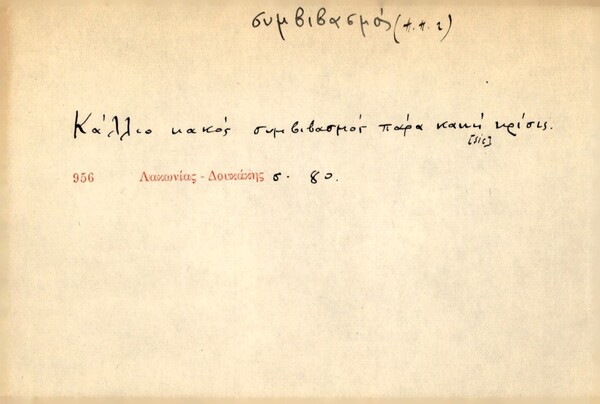 συμβιβασμός (π.π. 2)
Κάλλιο κακός συμβιβασμός παρά κακή κρίσις.
[sic]
956 Λακωνίας - Δουκάκης σ. 80.